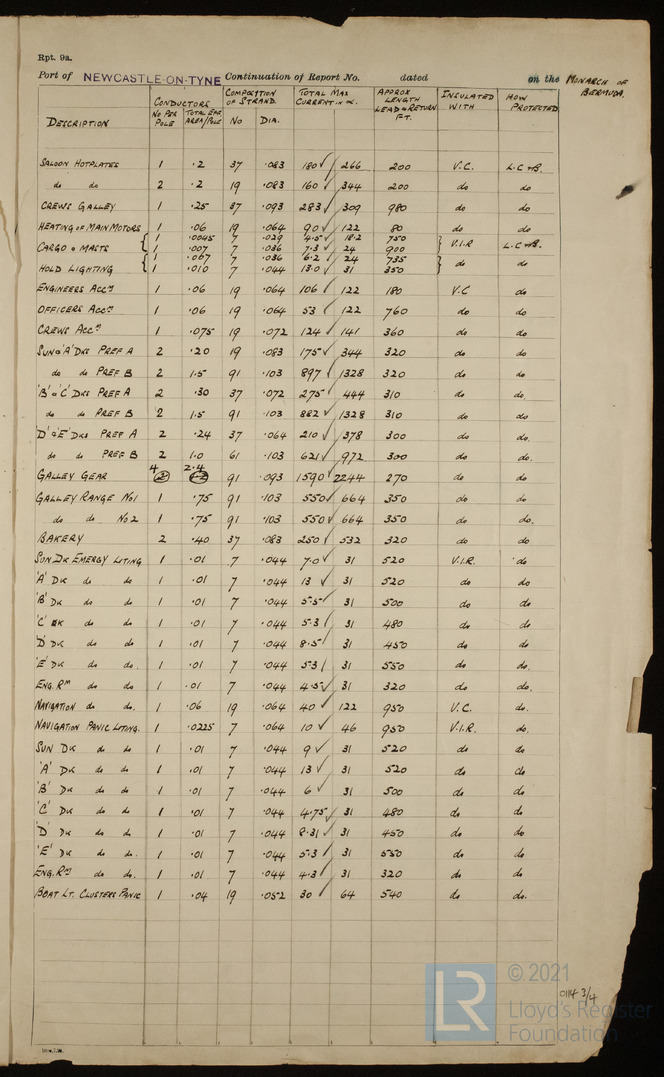 Rpt. 9a.
Port of NEWCASTLE-ON-TYNE Continuation of Report No. dated on the MONARCH OF BERMUDA.
DESCRIPTION CONDUCTORS No PER POLE TOTAL EFF. AREA/POLE COMPOSITION OF STRAND. No DIA. TOTAL MAX CURRENT IN APPROX LENGTH LEAD & RETURN FT. INSULATED WITH HOW PROTECTED
SALOON HOTPLATES 1 .2 37 .083 180 ✓ 266 200 V.C. L.C & B.
do do 2 .2 19 .083 160 ✓ 344 200 do do
CREWS GALLEY 1 .25 37 .093 283 ✓ 309 980 do do
HEATING OF MAIN MOTORS 1 .06 19 .064 90 ✓ 122 80 do do
CARGO & MASTS { 1 .0045 7 .029 4.5 ✓ 18.2 750 } V.I.R L.C & B.
1 .007 7 .036 7.3 ✓ 24 900
HOLD LIGHTING { 1 .007 7 .036 6.2 ✓ 24 735 } do do
1 .010 7 .044 13.0 ✓ 31 350
ENGINEERS ACCN 1 .06 19 .064 106 ✓ 122 180 V.C do
OFFICERS ACCN 1 .06 19 .064 53 ✓ 122 760 do do
CREWS ACCN 1 .075 19 .072 124 ✓ 141 360 do do
SUN & 'A' DKS PREF A 2 .20 19 .083 175 ✓ 344 320 do do
do do PREF B 2 1.5 91 .103 897 ✓ 1328 320 do do
'B' & 'C' DKS PREF A 2 .30 37 .072 275 ✓ 444 310 do do.
do do PREF B 2 1.5 91 .103 882 ✓ 1328 310 do do
'D' & 'E' DKS PREF A 2 .24 37 .064 210 ✓ 378 300 do do.
do do PREF B 2 1.0 61 .103 621 ✓ 972 300 do do.
4 2.4
GALLEY GEAR 91 .093 1590 ✓ 2244 270 do do
GALLEY RANGE No 1 1 .75 91 .103 550 ✓ 664 350 do do
do do No 2 1 .75 91 .103 550 ✓ 664 350 do do.
BAKERY 2 .40 37 .083 250 ✓ 532 320 do do
SUN DK EMERGY LITING 1 .01 7 .044 7.0 ✓ 31 520 V.I.R. do
'A' DK do do 1 .01 7 .044 13 ✓ 31 520 do do
'B' DK do do 1 .01 7 .044 5.5 ✓ 31 500 do do
'C' DK do do 1 .01 7 .044 5.3 ✓ 31 480 do do
'D' DK do do 1 .01 7 .044 8.5 ✓ 31 450 do do
'E' DK do do. 1 .01 7 .044 5.3 ✓ 31 550 do do.
ENG. RM do do 1 .01 7 .044 4.5 ✓ 31 320 do do.
NAVIGATION do do. 1 .06 19 .064 40 ✓ 122 950 V.C. do.
NAVIGATION PANIC LITING. 1 .0225 7 .064 10 ✓ 46 950 V.I.R. do.
SUN DK do do 1 .01 7 .044 9 ✓ 31 520 do do
'A' DK do do 1 .01 7 .044 13 ✓ 31 520 do do
'B' DK do do 1 .01 7 .044 6 ✓ 31 500 do do
'C' DK do do 1 .01 7 .044 4.75 ✓ 31 480 do do
'D' DK do do 1 .01 7 .044 8.31 ✓ 31 450 do do
'E' DK do do. 1 .01 7 .044 5.3 ✓ 31 550 do do
ENG. RM do do. 1 .01 7 .044 4.3 ✓ 31 320 do do
BOAT LT. CLUSTERS PANIC 1 .04 19 .052 30 ✓ 64 540 do do.
0114 3/4
LR © 2021
Lloyd's Register
Foundation